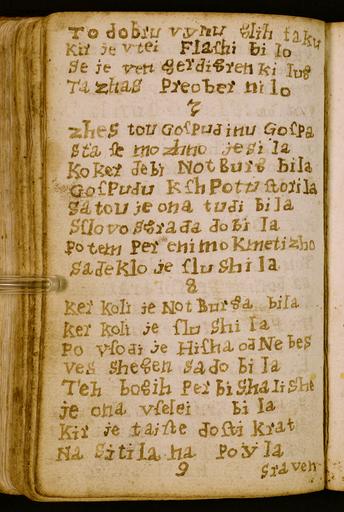 To dobru vynu glih taku
kir je vtei Flashi bi lo
Se je ven gerdigren ki lug
Ta zhas Preober ni lo
7
zhes tou Gospud inu Gospa
sta se mozhno jesi la
Koker debi Not Burg bila
Gospudu kshPotu storila
Sa tou je ona tudi bi la
Sslovo sgrada dobi la
Potem Per enimo Kmetizho
Sa deklo je slu shi la
8
ker koli je Not Burga bila
ker koli je slu shi la
Po vsodi je Hisha od Nebes
ves shegen sado bi la
Teh bogih Per bi shalishe
je ona vselei bi la
Kir je taiste dosti krat
Na siti la na poy la
9 sraven